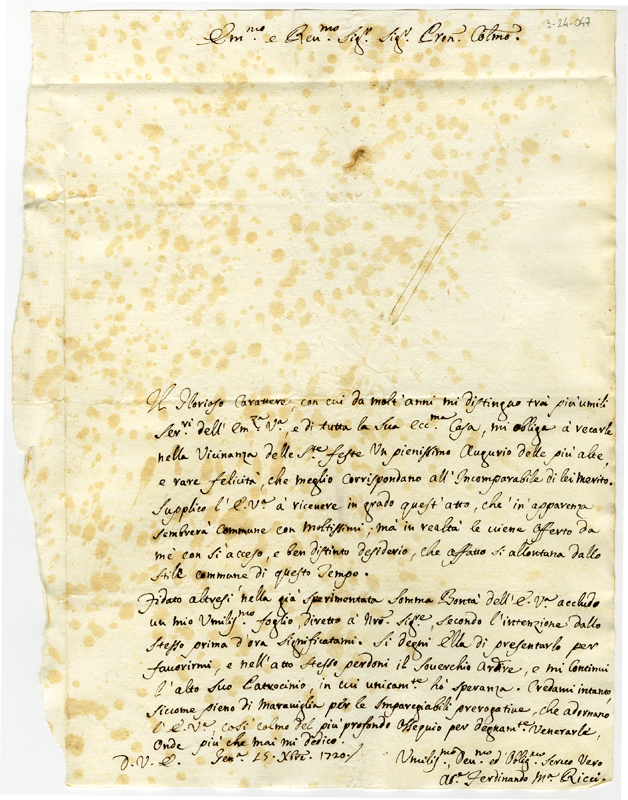 3-24-047
Em.mo e Reu.mo Sig.r Sig.r Pron. Colmo.
Il Glorioso Carattere, con cui da molt'anni mi distinguo trà più umili
Ser.ri dell'Em.za V.a e di tutta la Sua Ecc.ma Casa, mi obliga à recarle
nella Vicinanza delle S.te feste Un pienissimo Augurio delle più alte,
e rare felicità, che meglio corrispondano all'Incomparabile di lei merito.
Supplico l'E.V.a à riceuere in grado quest'atto, che in apparenza
sembrerà Commune con moltissimi; mà in realtà le uiene offerto da
mè con sì acceso, e ben distinto desiderio, che affatto si allontana dallo
stile commune di questo Tempo.
Fidato altresì nella già sperimentata Somma Bontà dell'E.V.a accludo
un mio Umilis.mo foglio diretto à Nro. Sig.re secondo l'intenzione dallo
stesso prima d'ora significatami. Si degni Ella di presentarlo per
fauorirmi, e nell'atto stesso perdoni il souerchio Ardire, e mi Continui
l'alto Suo Patrocinio, in cui unicam.te hò speranza. Credami intanto,
siccome pieno di Marauiglia per le Impareggiabili prerogatiue, che adornano
l'E.V.a così colmo del più profondo Ossequio per degnam.te Venerarla,
Onde più che mai mi dedico.
D.V.E. Gen.a 15. Xbre. 1720.
Umilis.mo, Deu.mo ed Oblig.mo Seruo Vero
Ab.e Ferdinando M.a Ricci.